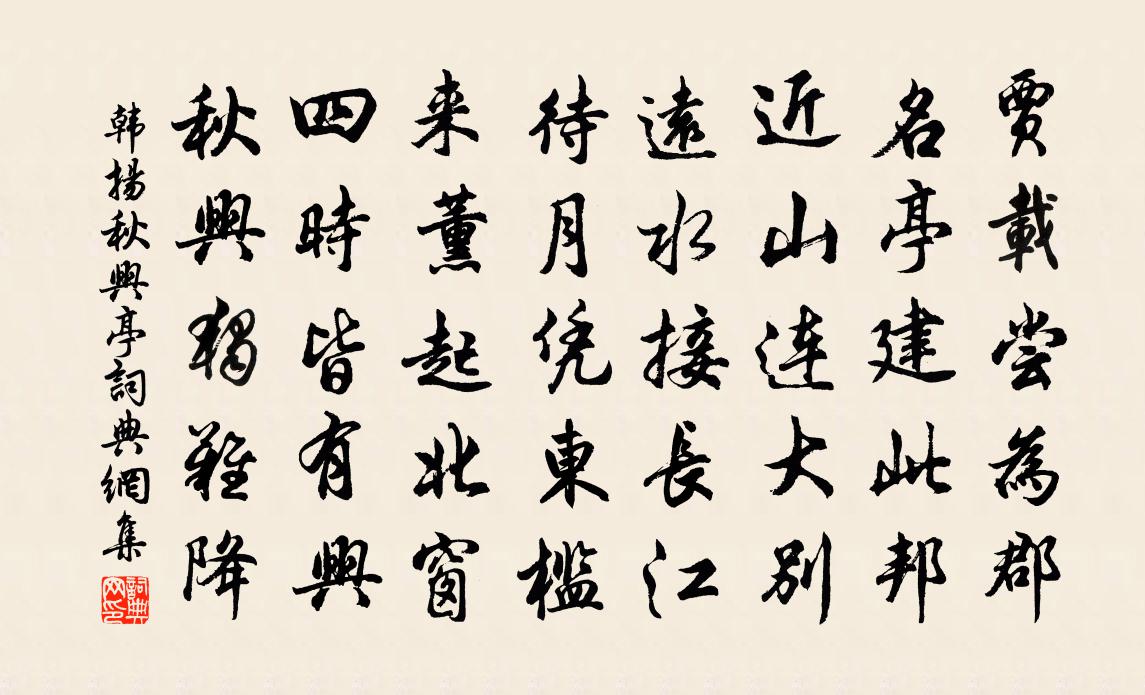 賈載嘗為郡
名亭建此邦
近山連大别
遠水接長江
待月凭東檻
来薰起北窗
四時皆有興
秋興獨難降
韩揚秋興亭詞典網集
詞典网印